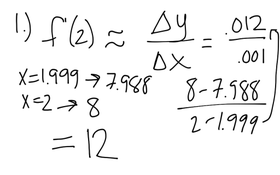 1.) f'(2) ≈ Δy/Δx = .012/.001
x=1.999 → 7.988
x=2 → 8
8-7.988/2-1.999
= 12